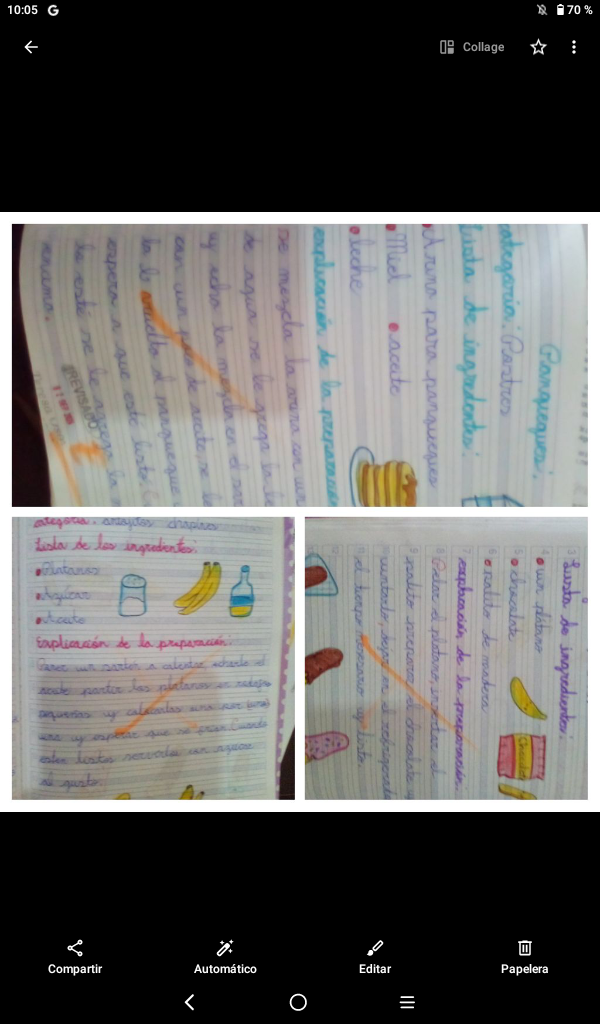 10:05
70 %
Collage
Panqueques:
categoria: Postres
Lista de ingredientes:
Arina para panqueques
Miel aceite
leche
explicación de la preparación
se mezcla la arina con un
de agua se le agrega la le
y echa la mezcla en el
con un poco de aceite, se
ta el al panqueque
espera a que este listo
la esté se le agrega la m
encima.
REVISADO
categoria: antojitos chapines
Lista de los ingredientes:
Platanos
Azucar
Aceite
Explicación de la preparación:
Poner un sarten a calentar echarle el
aceite partir los platanos en rodajas
pequeñas y colocarlos uno por
uno y esperar que se frian Cuando
esten listos servirlos con azucar
al gusto.
3 Lista de ingredientes:
4 un plátano
5 chocolate
6 palito de madera
7 explicación de la preparación:
8 Pelar el plátano insertar el
9 palito preparar el chocolate y
untarlo, dejar en el refrigerador
el tiempo necesario y listo.
Chocolate
Compartir
Automático
Editar
Papelera